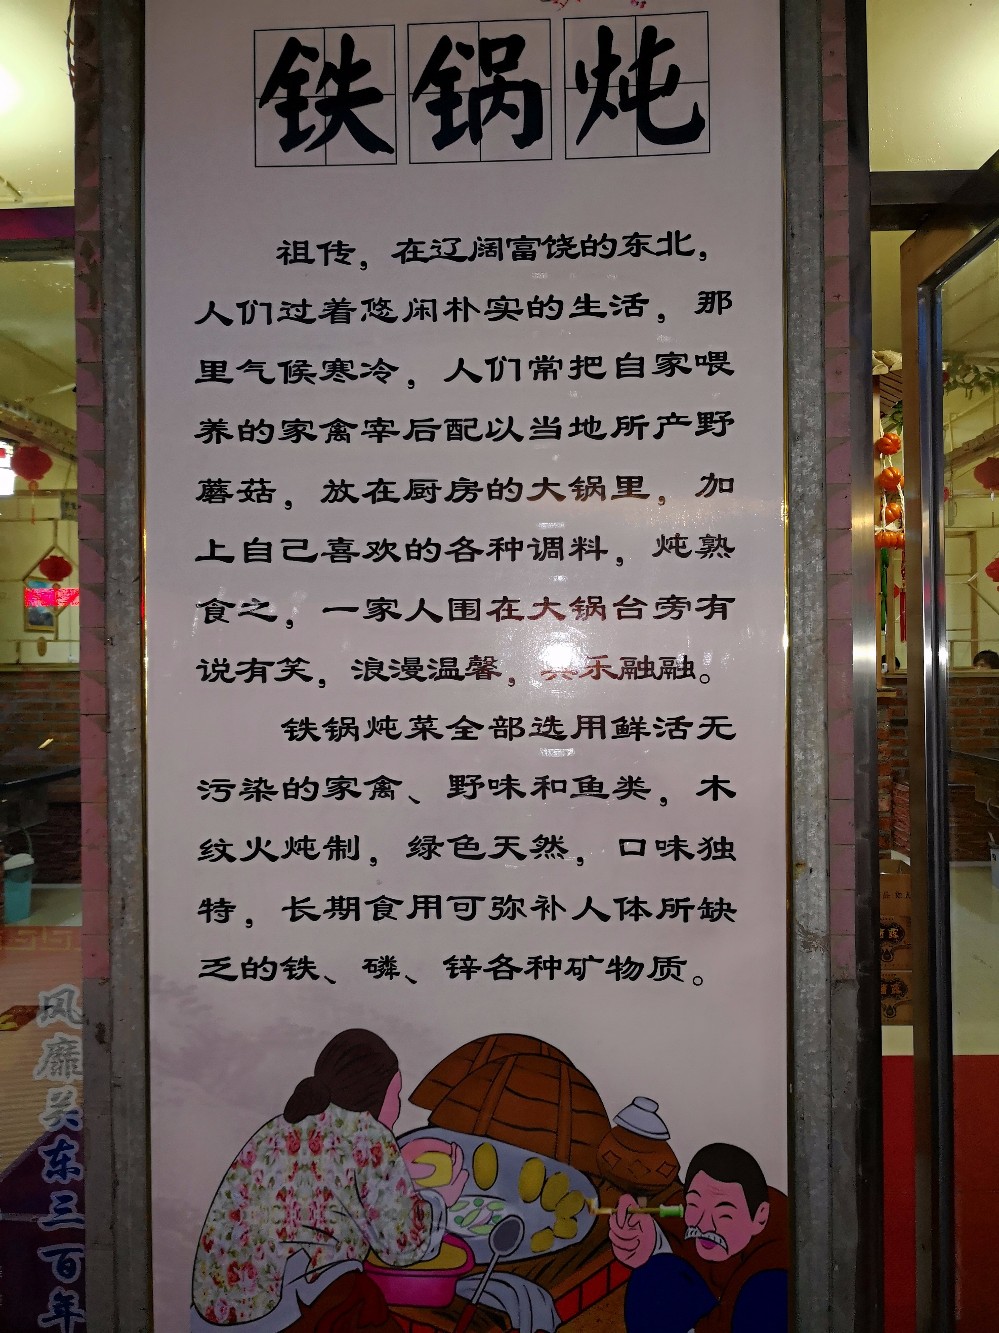 铁锅炖
祖传，在辽阔富饶的东北，
人们过着悠闲朴实的生活，那
里气候寒冷，人们常把自家喂
养的家禽宰后配以当地所产野
蘑菇，放在厨房的大锅里，加
上自己喜欢的各种调料，炖熟
食之，一家人围在大锅台旁有
说有笑，浪漫温馨，其乐融融。
铁锅炖菜全部选用鲜活无
污染的家禽、野味和鱼类，木
纹火炖制，绿色天然，口味独
特，长期食用可弥补人体所缺
乏的铁、磷、锌各种矿物质。
风靡关东三百年